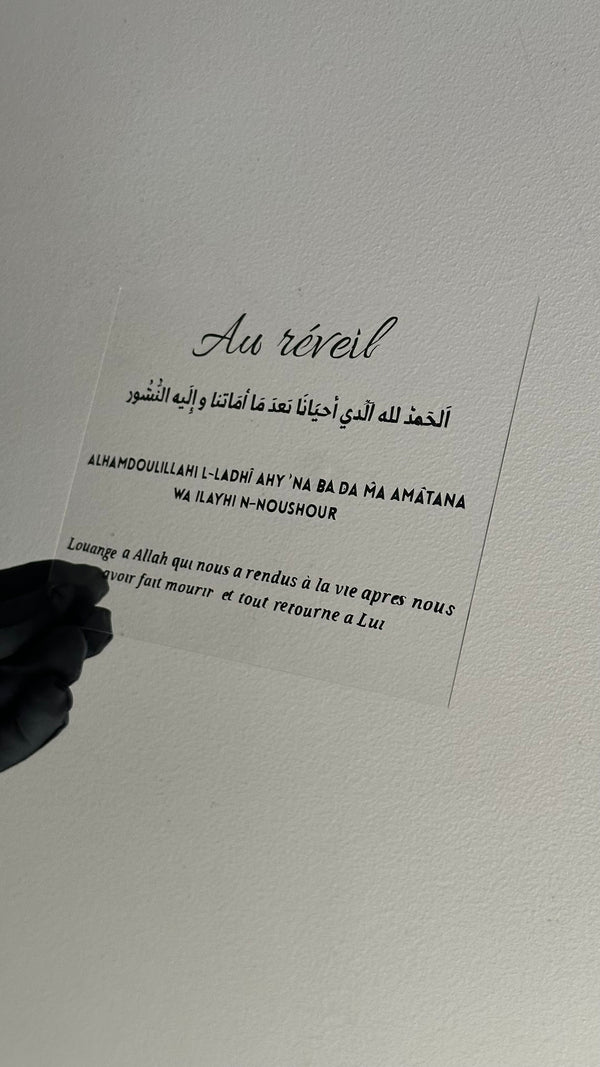 Au réveil
اَلحَمدُ لله الَّدي أحيَانَا بَعدَ مَا أمَاتنا و إلَيه النُّشُور
ALHAMDOULILLAHI L-LADHÎ AHY 'NA BA DA MA AMÂTANA
WA ILAYHI N-NOUSHOUR
Louange a Allah qui nous a rendus à la vie apres nous
avoir fait mourir et tout retourne a Lui